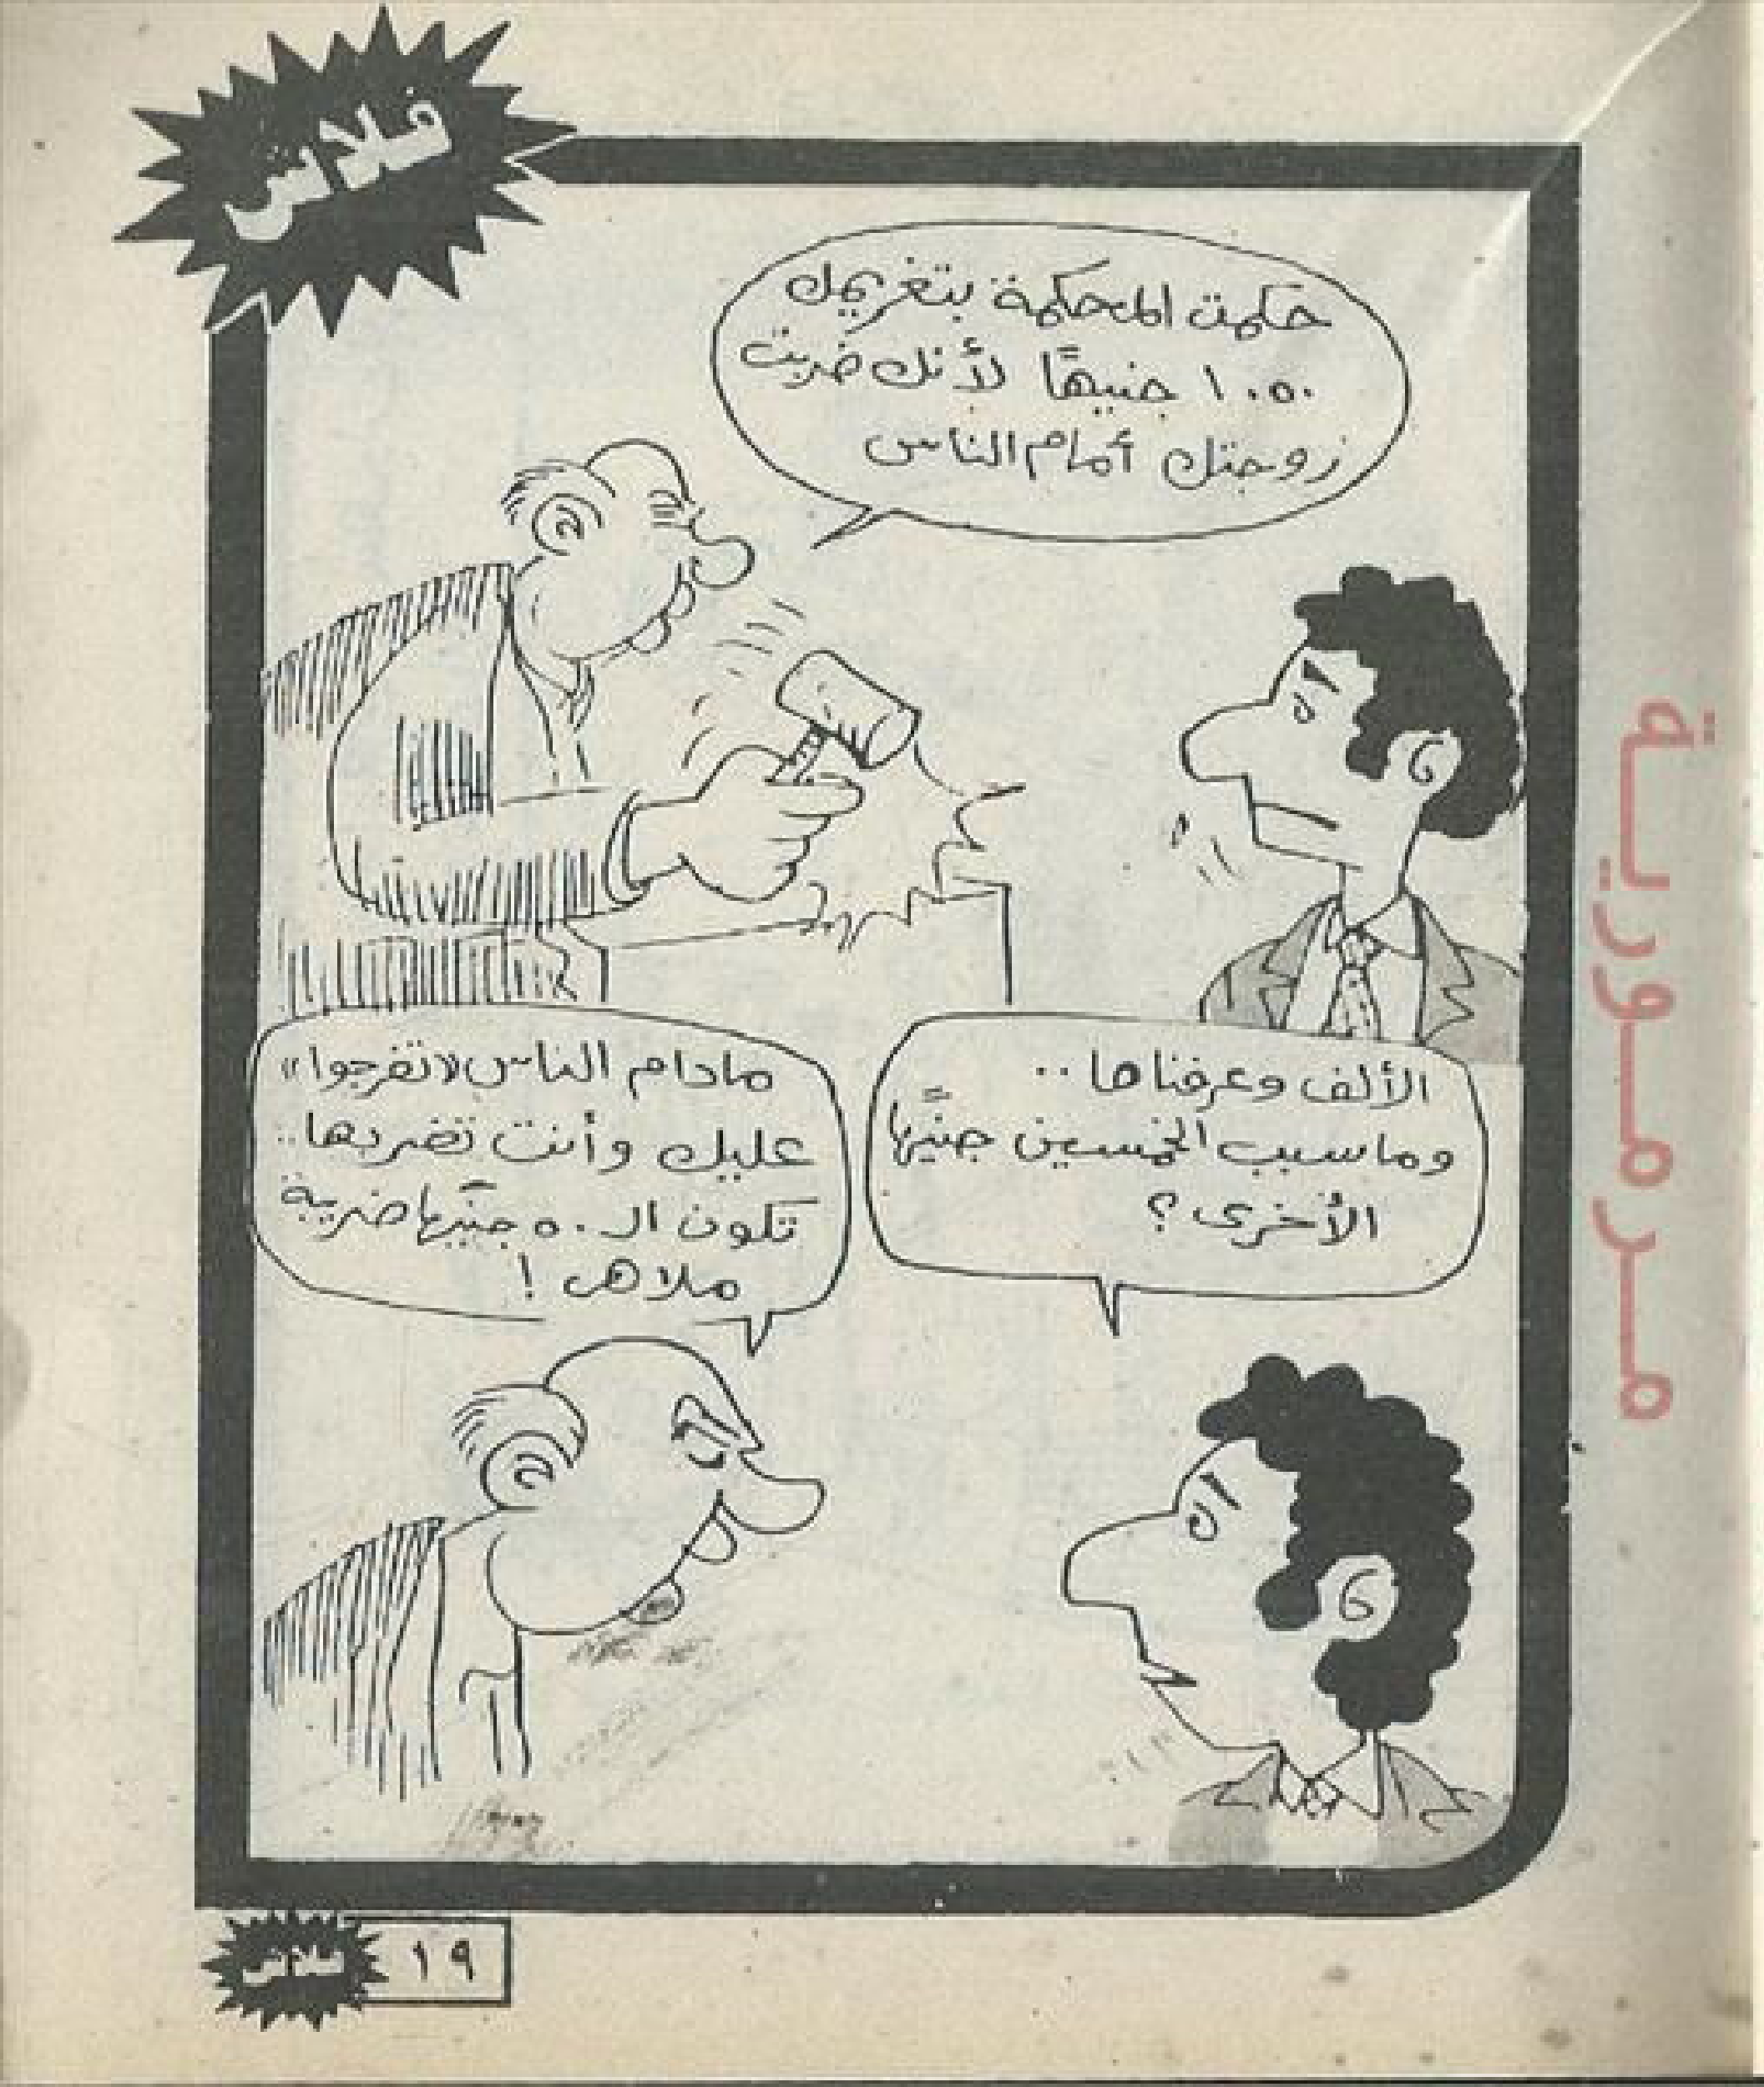 فلاش
حكمت المحكمة بتغريمك
١٠٥٠ جنيهًا لأنك ضربت
زوجتك أمام الناس
الألف وعرفناها ..
وما سبب الخمسين جنيها
الأخرى ؟
مادام الناس «اتفرجوا»
عليك وأنت تضربها ..
تكون الـ ٥٠ جنيها ضريبة
ملاهى !
مرمورية
فلاش
١٩